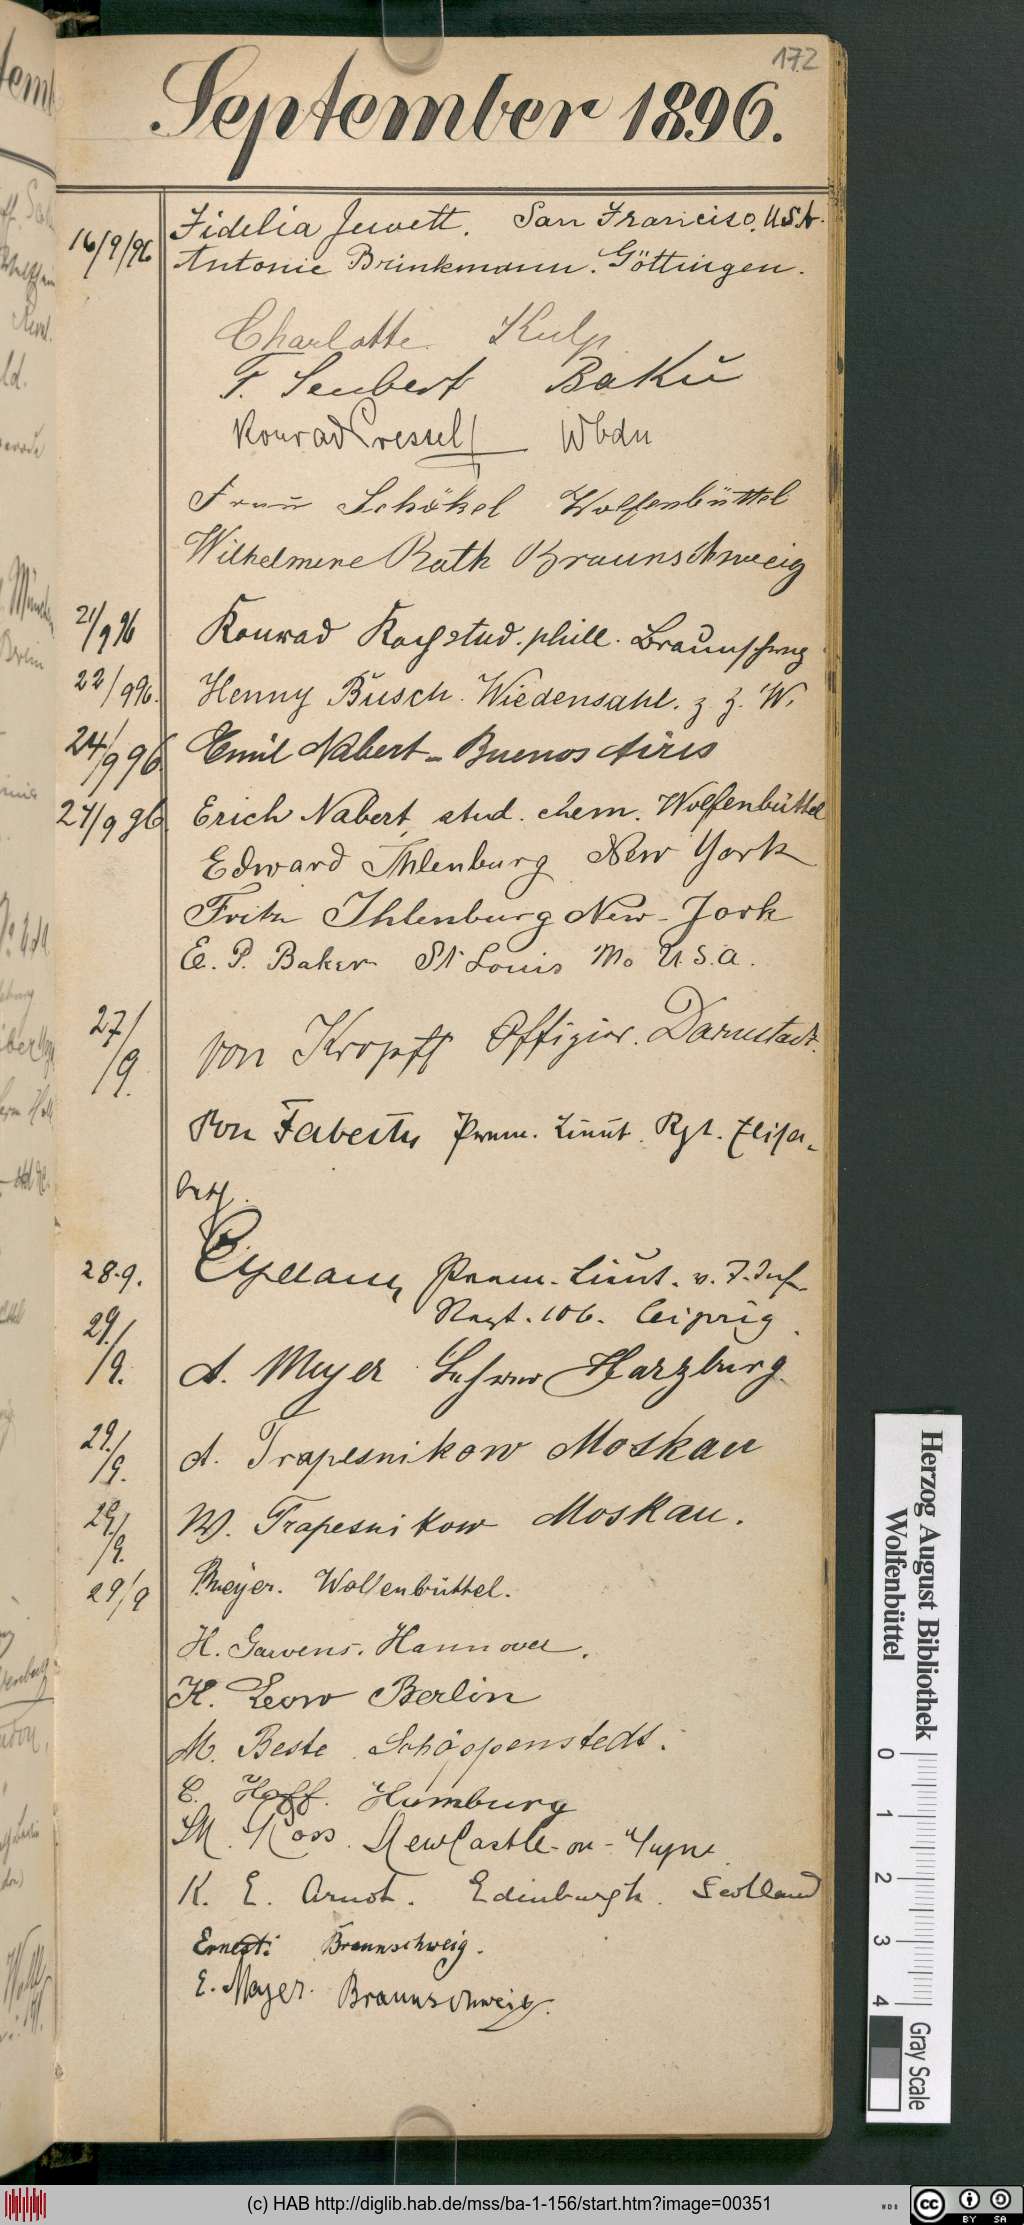 172
September 1896.
16/9/96 Fidelia Jewett. San Francisco, U.S.A.
Antonie Brinkmann. Göttingen.
Charlotte Kulp
F. Seubert Baku
Konrad Cressel Wbdn
Frau Schökel Wolfenbüttel
Wilhelmene Rath Braunschweig
21/9 96 Konrad Koch stud. phill. Braunschweig
22/9 96. Henny Busch. Wiedensahl. z. Z. W.
24/9 96. Emil Nabert - Buenos Aires
24/9 96. Erich Nabert, stud. chem. Wolfenbüttel
Edward Ihlenburg New York
Fritz Ihlenburg New-York
E. P. Baker St Louis Mo U.S.A.
27/9. von Kropff Offizier. Darmstadt.
Von Prem. Lieut. Rgt. Elisa-
beth.
28.9. Prem. Lieut. v. 7. Inf.
Regt. 106. Leipzig.
29./9. A. Meyer Lehrer Harzburg.
29./9. A. Trapesnikow Moskau
29./9. W. Trapesnikow Moskau.
29/9 Meyer. Wolfenbüttel.
H. Gawens. Hannover.
K. Leow Berlin
M. Beste. Schöppenstedt.
C. Hoff. Hamburg
M. Ross. NewCastle-on-Tyne
K. E. Arnot. Edinburgh. Scotland
Ernesti Braunschweig.
E. Mayer. Braunschweig.
Herzog August Bibliothek
Wolfenbüttel
0 1 2 3 4
Gray Scale
(c) HAB http://diglib.hab.de/mss/ba-1-156/start.htm?image=00351
WDB
cc BY SA